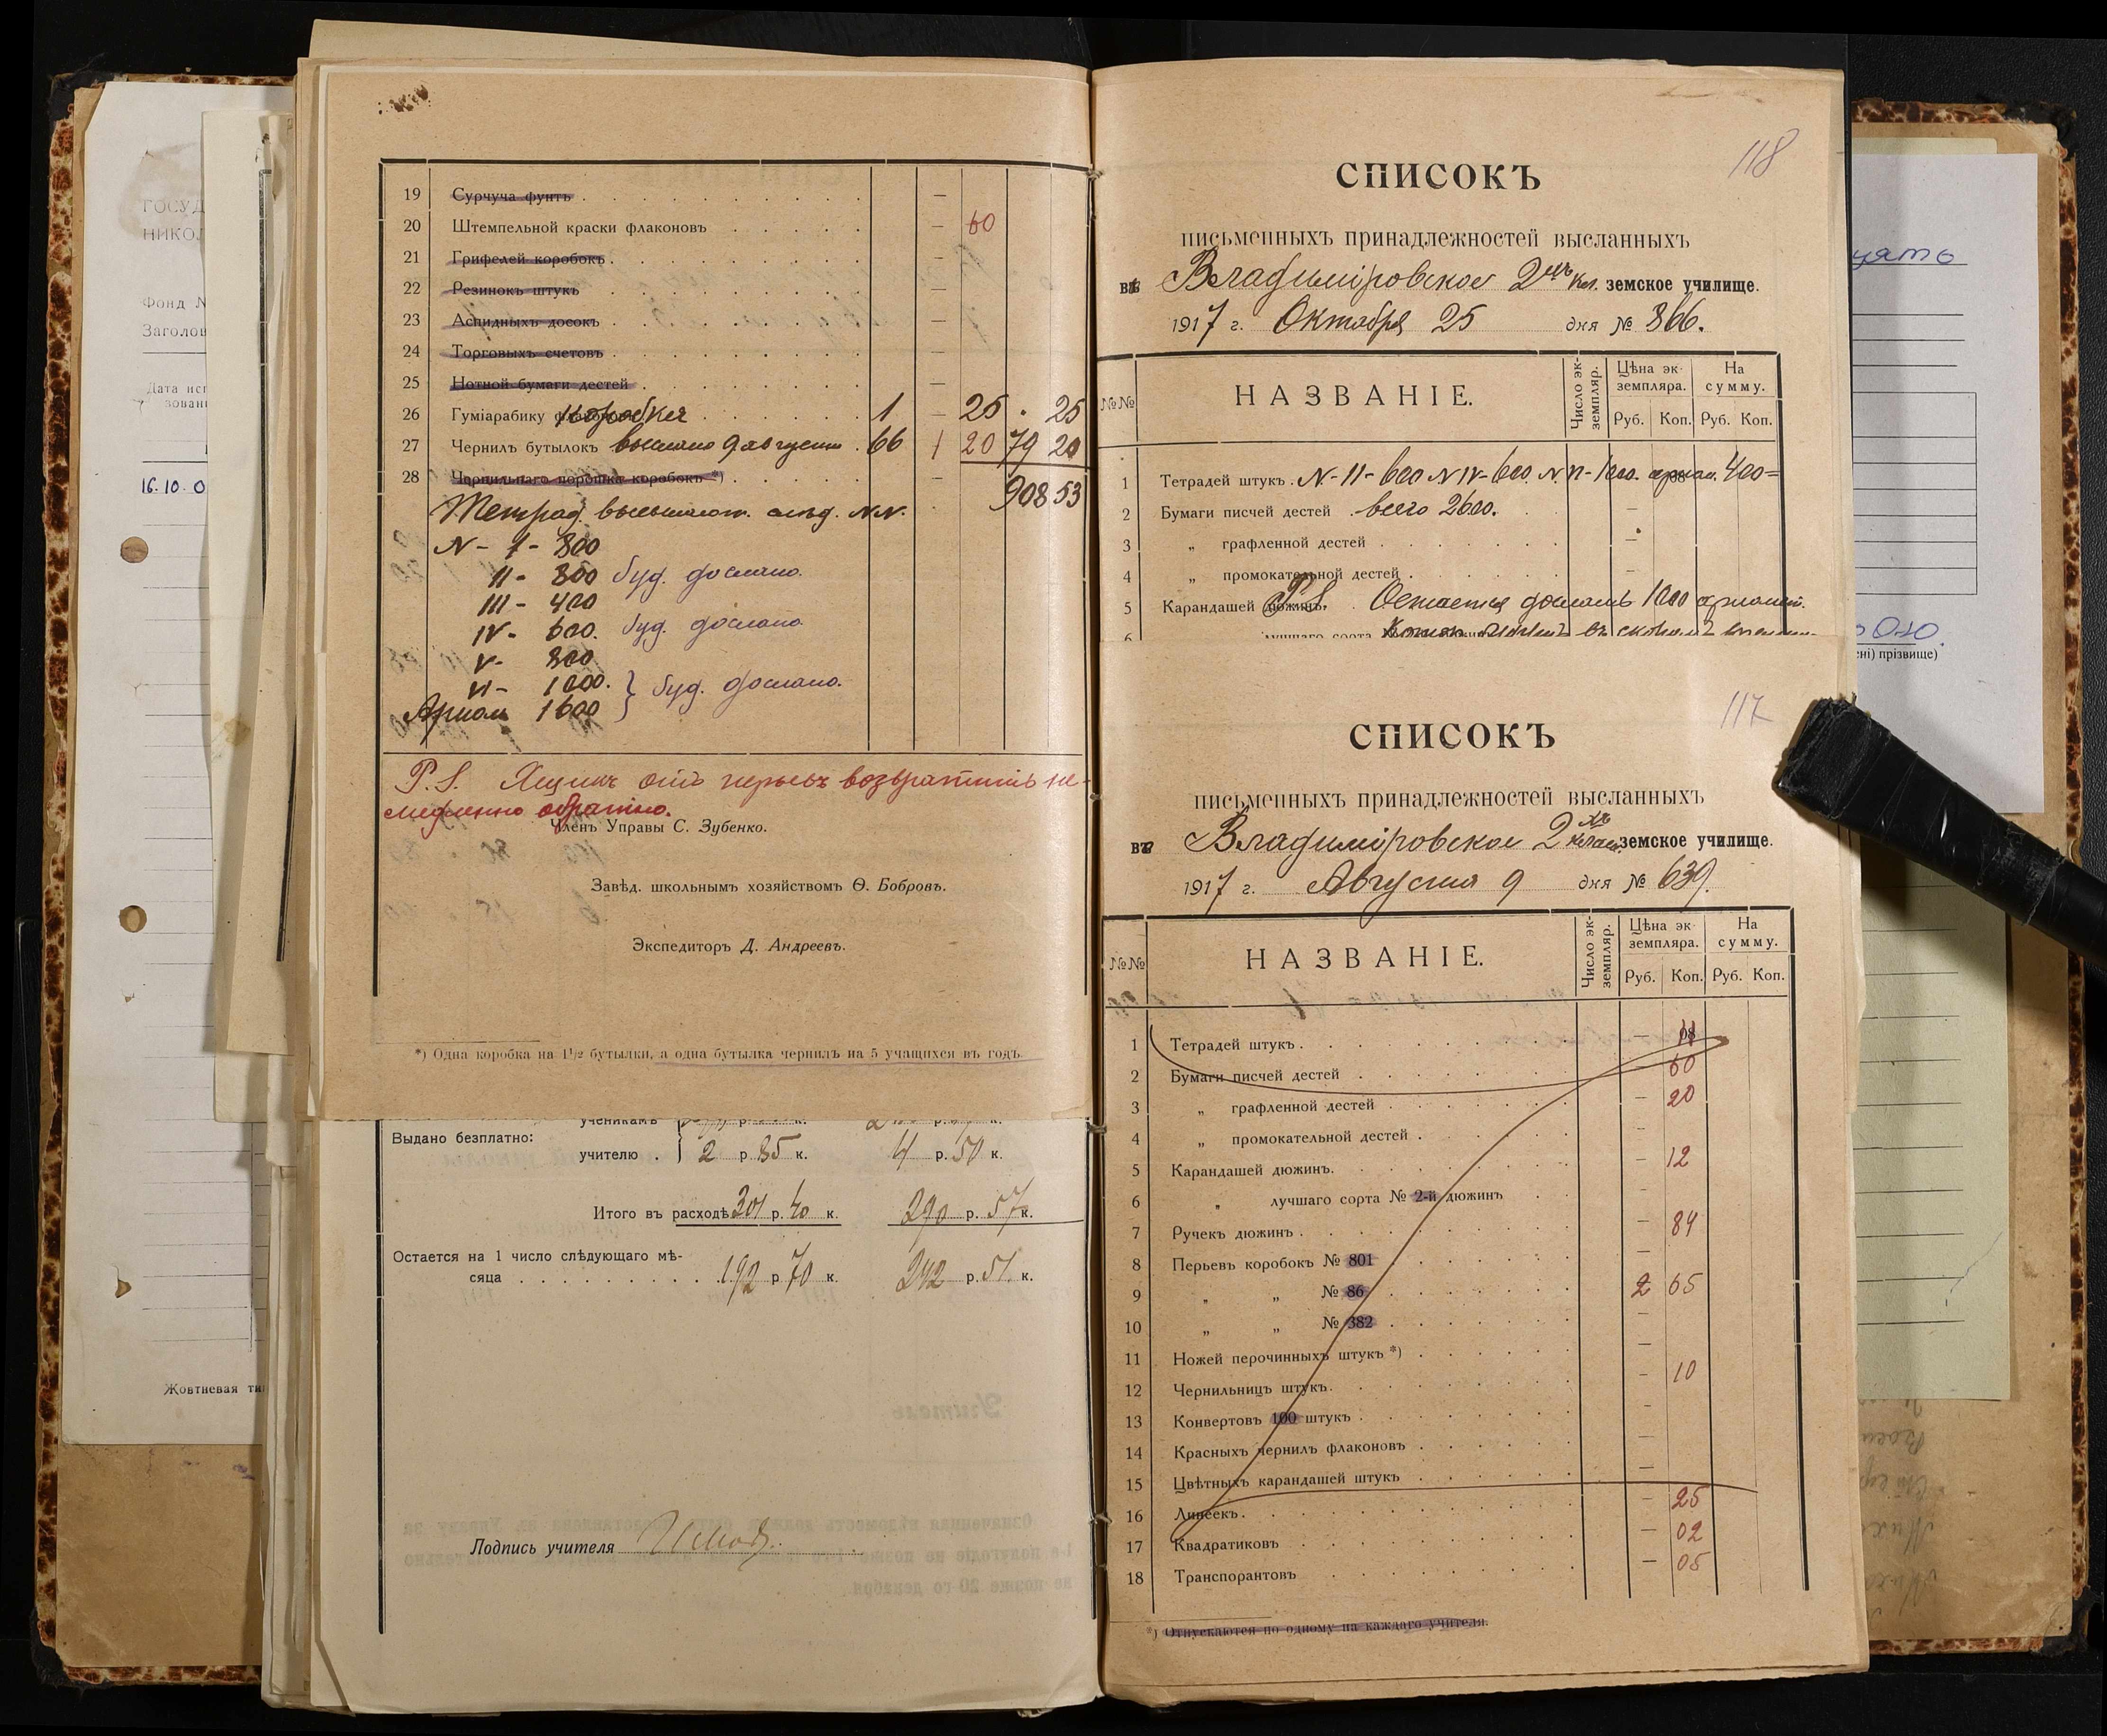 19 Сургуча фунтъ —
20 Штемпельной краски флаконовъ — 60
21 Грифелей коробокъ —
22 Резинокъ штукъ —
23 Аспидныхъ досокъ —
24 Торговыхъ счетовъ —
25 Нотной бумаги дестей —
26 Гуміарабику коробки 1 — 25 . 25
27 Чернилъ бутылокъ выслано 9 августа 66 1 20 79 20
28 Чернильнаго порошка коробокъ *) — 908 53
Тетрад. высылают. слѣд. N.N.
N - I - 800
II - 800 буд. дослано.
III - 400
IV - 600. буд. дослано
V - 800
VI - 1000. } буд. дослано.
Ариом 1600
P.S. Ящикъ отъ перьевъ возвратить не-
медленно обратно.
Членъ Управы С. Зубенко.
Завѣд. школьнымъ хозяйствомъ Ѳ. Бобровъ.
Экспедиторъ Д. Андреевъ.
*) Одна коробка на 1½ бутылки, а одна бутылка чернилъ на 5 учащихся въ годъ.
Выдано безплатно:
ученикамъ
учителю . 2 р. 85 к. 4 р. 50 к.
Итого въ расходѣ 301 р. 40 к. 290 р. 57 к.
Остается на 1 число слѣдующаго мѣ-
сяца 192 р. 70 к. 242 р. 51 к.
Подпись учителя
118
СПИСОКЪ
письменныхъ принадлежностей высланныхъ
въ Владиміровское 2хъ кл. земское училище.
1917 г. Октября 25 дня № 866.
№№ НАЗВАНІЕ. Число эк-земпляр. Цѣна эк-земпляра. На сумму.
Руб. Коп. Руб. Коп.
1 Тетрадей штукъ. N-II-600 N IV-600. N. VI-1000. ариом. 400=
2 Бумаги писчей дестей всего 2600. —
3 „ графленной дестей —
4 „ промокательной дестей —
5 Карандашей дюжинъ. P.S. Остается дослать 1200 ариомет.
6 лучшаго сорта
117
СПИСОКЪ
письменныхъ принадлежностей высланныхъ
въ Владиміровское 2хъ класн. земское училище.
1917 г. Августа 9 дня № 639.
№№ НАЗВАНІЕ. Число эк-земпляр. Цѣна эк-земпляра. На сумму.
Руб. Коп. Руб. Коп.
1 Тетрадей штукъ. —
2 Бумаги писчей дестей — 60
3 „ графленной дестей — 20
4 „ промокательной дестей —
5 Карандашей дюжинъ. — 12
6 „ лучшаго сорта № 2-й дюжинъ
7 Ручекъ дюжинъ — 84
8 Перьевъ коробокъ № 801 —
9 „ „ № 86 2 65
10 „ „ № 382 —
11 Ножей перочинныхъ штукъ *) —
12 Чернильницъ штукъ. — 10
13 Конвертовъ 100 штукъ —
14 Красныхъ чернилъ флаконовъ —
15 Цвѣтныхъ карандашей штукъ —
16 Линеекъ. — 25
17 Квадратиковъ — 02
18 Транспорантовъ — 05
*) Отпускаются по одному на каждаго учителя.
Фонд №
Дата исп
16.10.0
Жовтневая ти
прізвище)